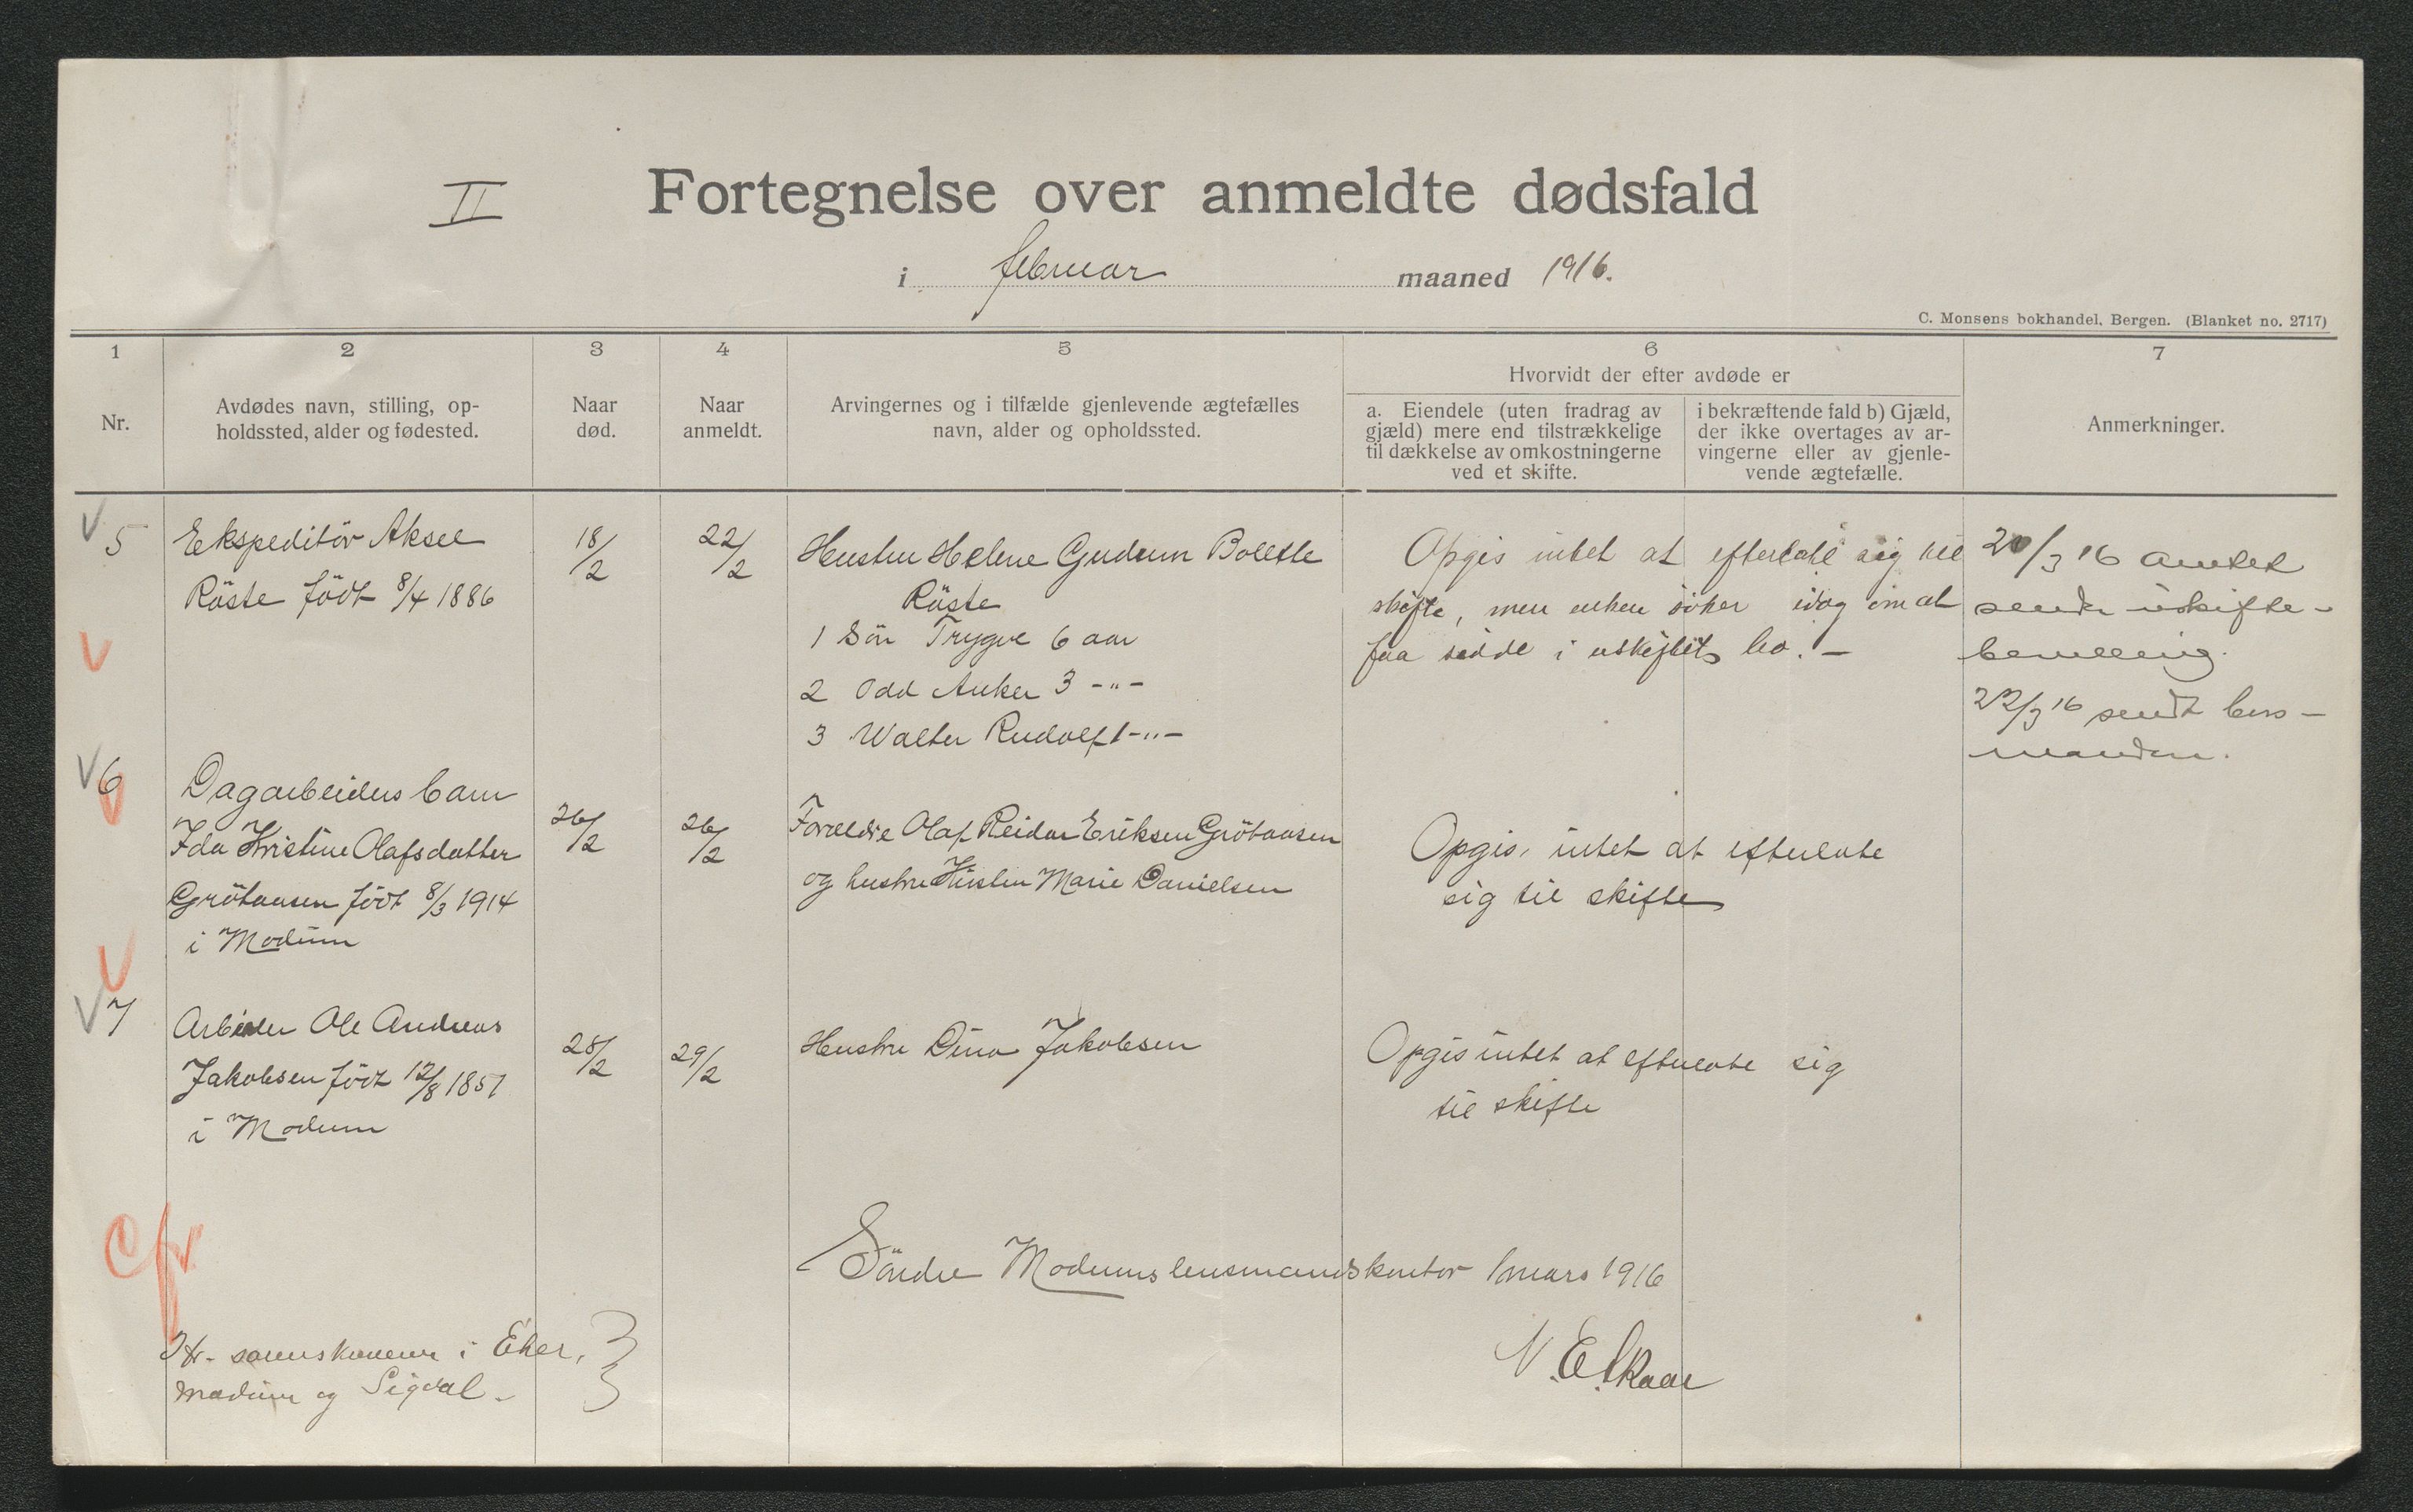 II
Fortegnelse over anmeldte dødsfald
i februar maaned 1916.
C. Monsens bokhandel, Bergen. (Blanket no. 2717)
1
2
3
4
5
6
7
Nr.
Avdødes navn, stilling, op-
holdssted, alder og fødested.
Naar
død.
Naar
anmeldt.
Arvingernes og i tilfælde gjenlevende ægtefælles
navn, alder og opholdssted.
Hvorvidt der efter avdøde er
a. Eiendele (uten fradrag av
gjæld) mere end tilstrækkelige
til dækkelse av omkostningerne
ved et skifte.
i bekræftende fald b) Gjæld,
der ikke overtages av ar-
vingerne eller av gjenle-
vende ægtefælle.
Anmerkninger.
V 5
Ekspeditör Aksel
Röste födt 8/4 1886
18/2
22/2
Hustru Helene Gudrun Bolette
Röste
1 Sön Trygve 6 aar
2 Odd Anker 3 -"-
3 Walter Rudolf 1 -"-
Opgis intet at efterlate sig til
skifte, men enken söker idag om at
faa sidde i uskiftet bo. -
20/3 16 amtet
sender uskifte-
bevilling.
22/3 16 sendt lens-
manden.
V 6
Dagarbeiders barn
Ida Kristine Olafsdatter
Grötaasen födt 8/3 1914
i Modum
26/2
26/2
Forældre Olaf Reidar Eriksen Grötaasen
og hustru Kirstin Marie Danielsen
Opgis intet at efterlate
sig til skifte
V 7
Arbeider Ole Andreas
Jakobsen födt 12/8 1857
i Modum
28/2
29/2
Hustru Dina Jakobsen
Opgis intet at efterlate sig
til skifte
Cfr
Söndre Modums lensmandskontor 1 mars 1916
N. E. Skaar
Hr. sorenskriveren i Eker,
Modum og Sigdal.